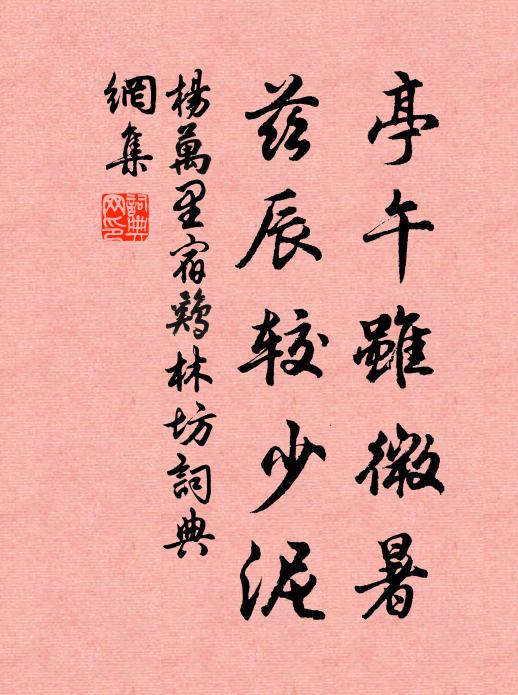 亭午雖微暑
茲辰較少泥
楊萬里宿鷄林坊詞典
網集
詞典
网印